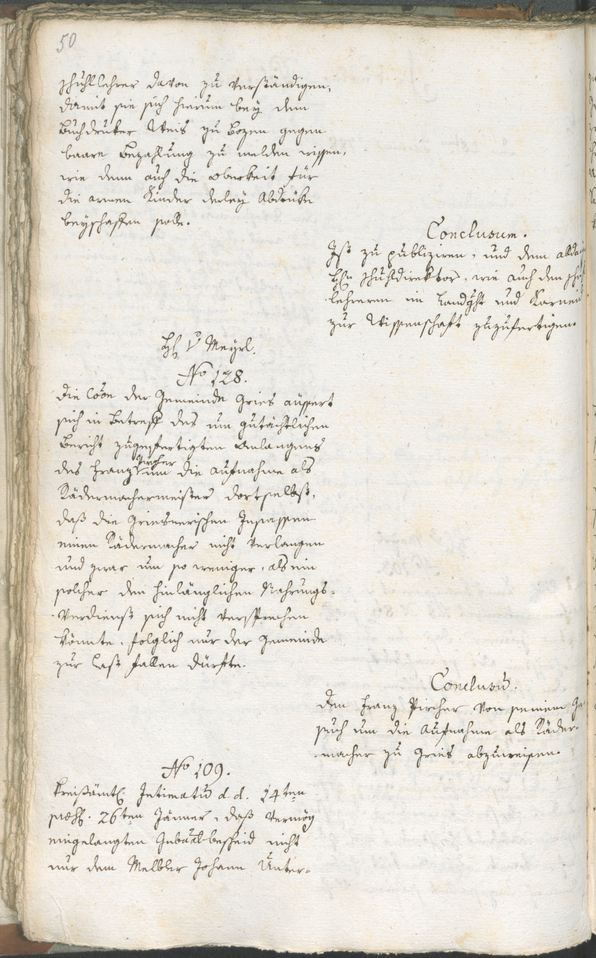 50
schullehrer davon zu verständigen,
damit sie sich hierum bey dem
Buchdruker Weis zu Bozen gegen
baare Bezahlung zu melden wissen,
wie denn auch die Obrkeit für
die armen Kinder derley Abdrüke
beyschaffen solle.
Conclusum.
Ist zu publiziren, und dem
Hhn Schuldirektor, wie auch den
lehrern im Landght und Karneid
zur Wissenschaft zuzufertigen.
Hh v Meyrl.
No 128.
die Cöon der Gemeinde Gries äussert
sich in Betreff des um gutächtlichen
Bericht zugefertigten Anlangens
des Franz Pircher um die Aufnahme als
Rädermachermeister dortselbst,
daß die Grieserischen Insassen
einen Rädermacher nicht verlangen
und zwar um so weniger, als ein
solcher den hinlänglichen Nahrungs-
verdienst sich nicht versprechen
könnte, folglich nur der Gemeinde
zur Last fallen dürfte.
Conclusũ.
Den Franz Pircher von seinem Ge
such um die Aufnahme als Räder-
macher zu Gries abzuweisen.
No 109.
Kreißämtl. Intimatũ d. d. 14ten
26ten Jänner, daß vermög
eingelangten Gubãl bescheid nicht
nur dem Melbler Johann Unter-